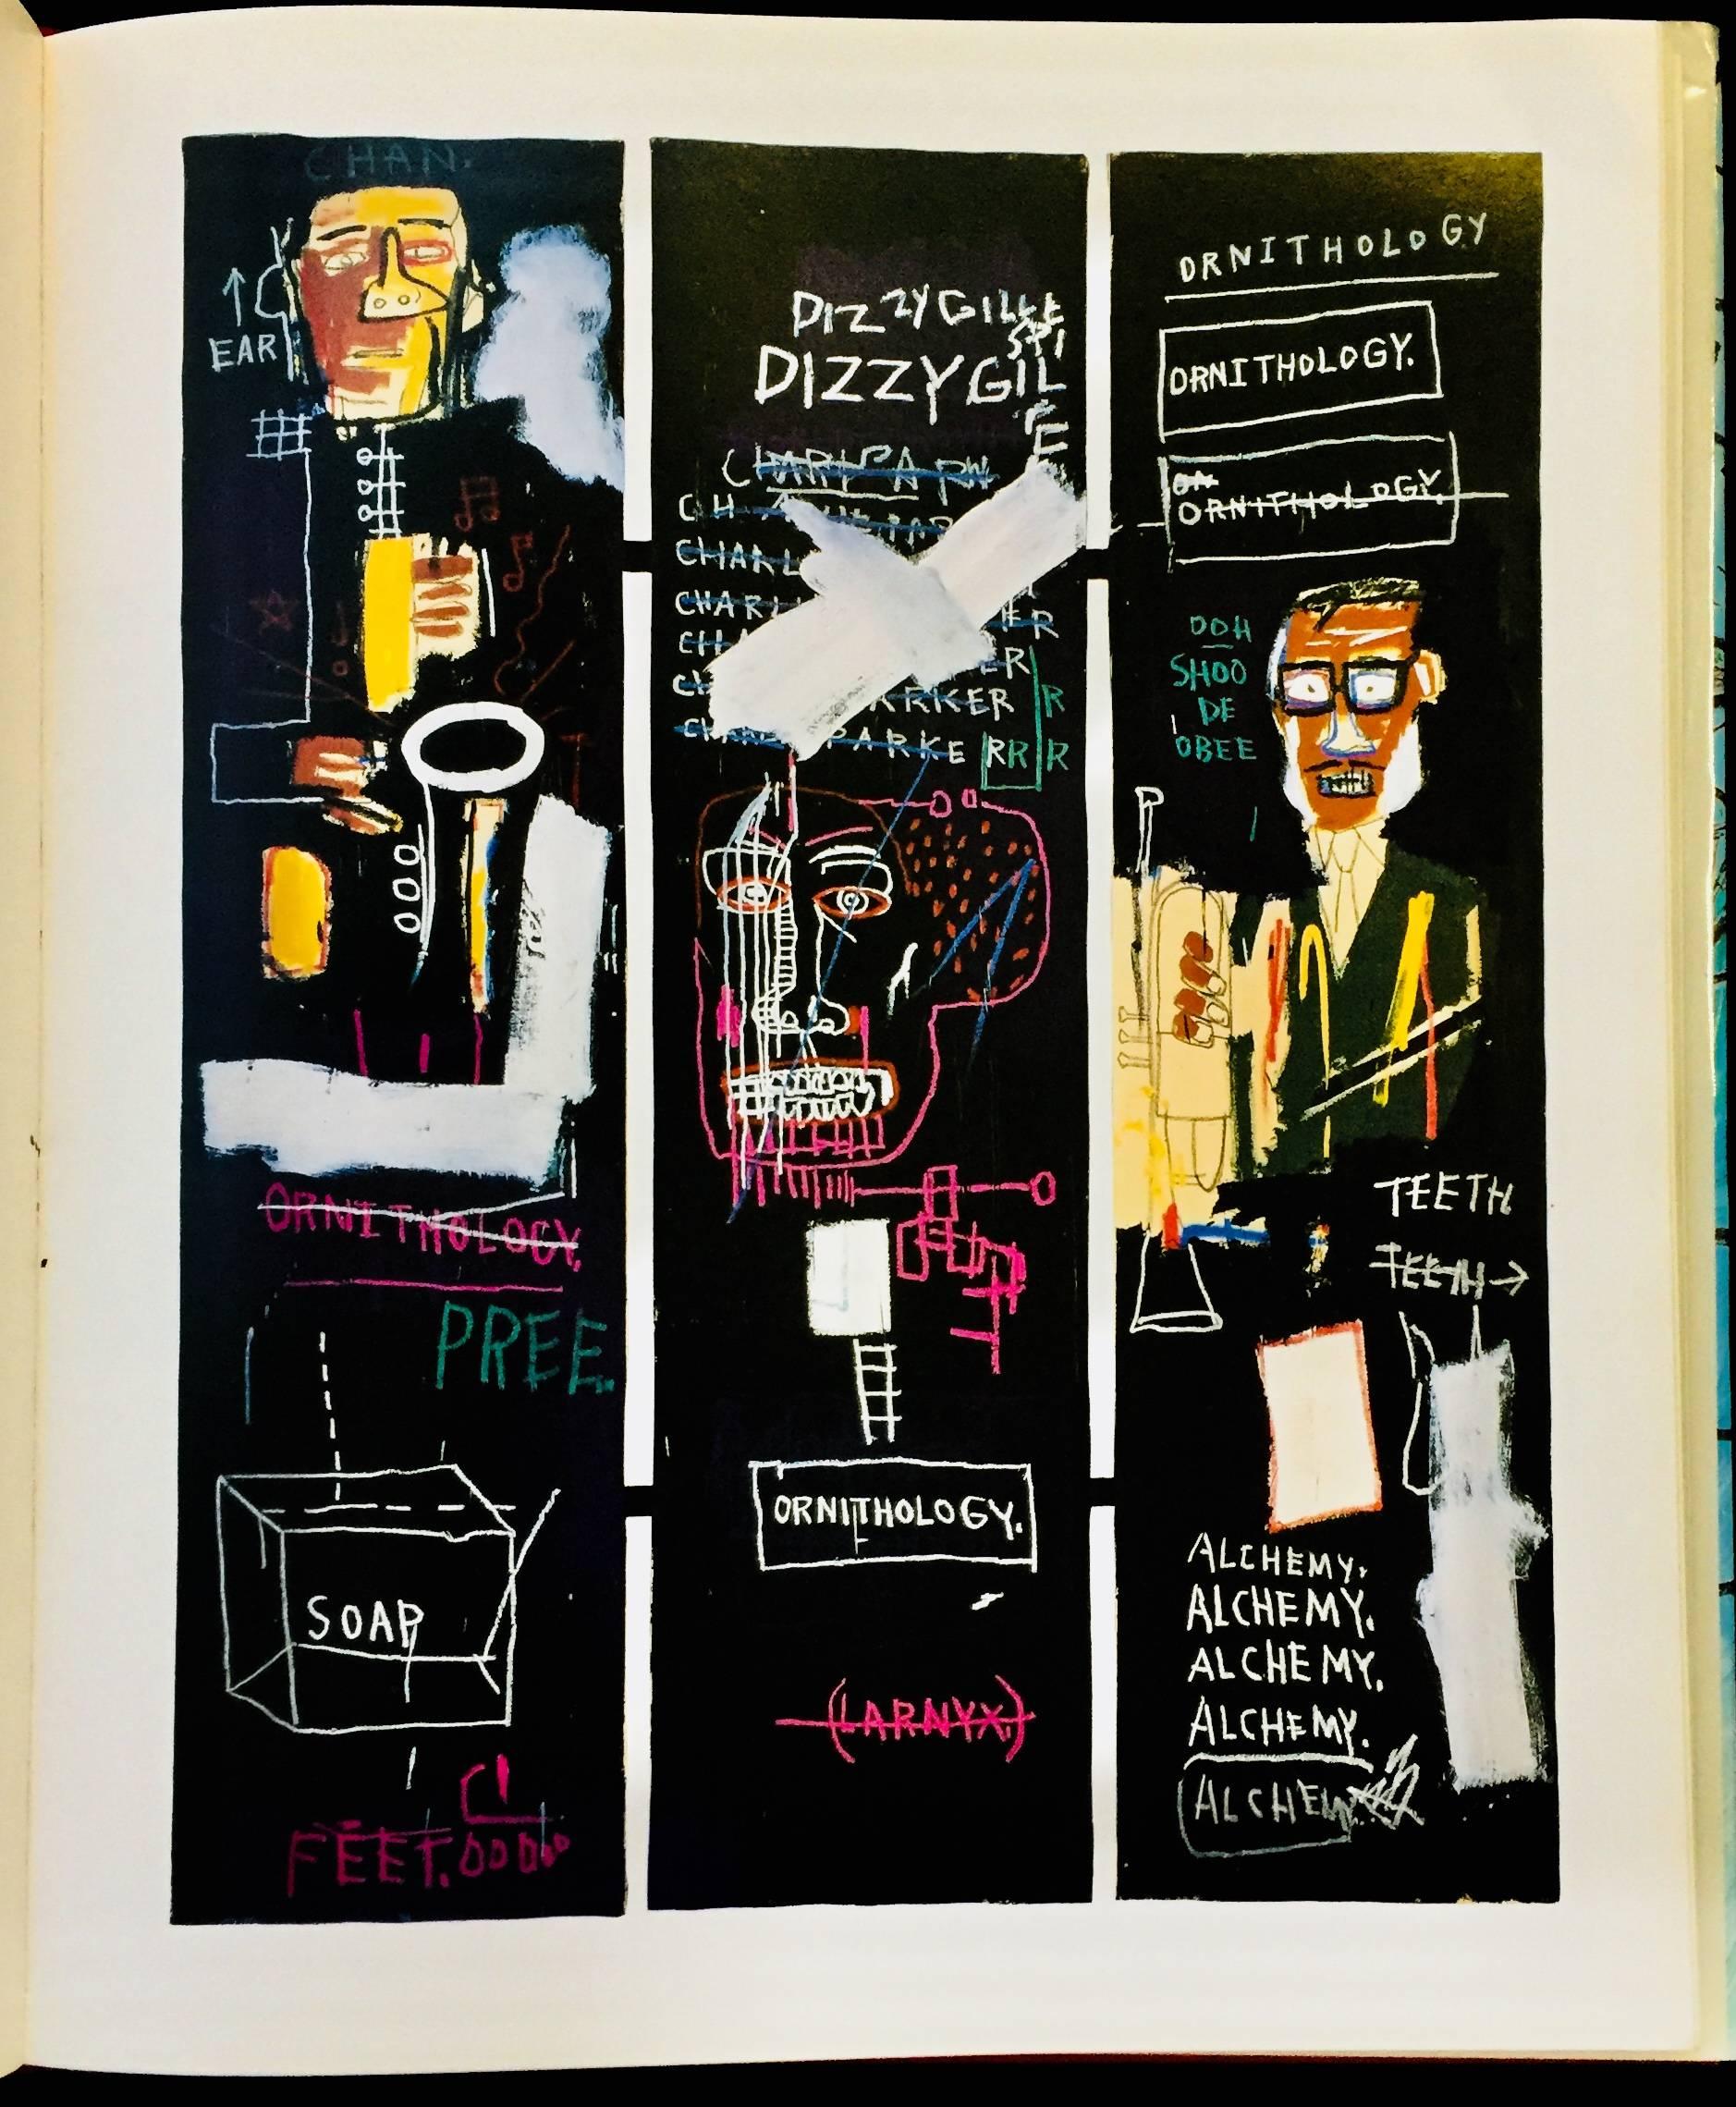 CHAN.
EAR
ORNITHOLOGY.
PREE.
SOAP
FEET.
DIZZYGILLE
SPI
DIZZYGIL
E
CHARL
CHARL
ER
ER
PARKER
PARKE RR R
R
ORNITHOLOGY.
(LARNYX.)
ORNITHOLOGY
ORNITHOLOGY.
ORNITHOLOGY.
OOH
SHOO
DE
OBEE
TEETH
TEETH→
ALCHEMY.
ALCHEMY.
ALCHEMY.
ALCHEMY.
ALCHEM